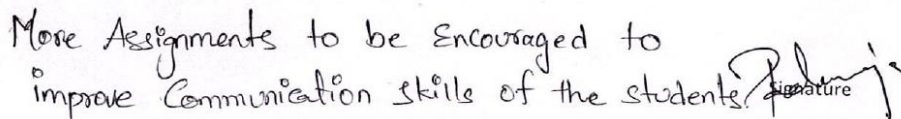 More Assignments to be Encouraged to
improve Communication skills of the students.
Signature